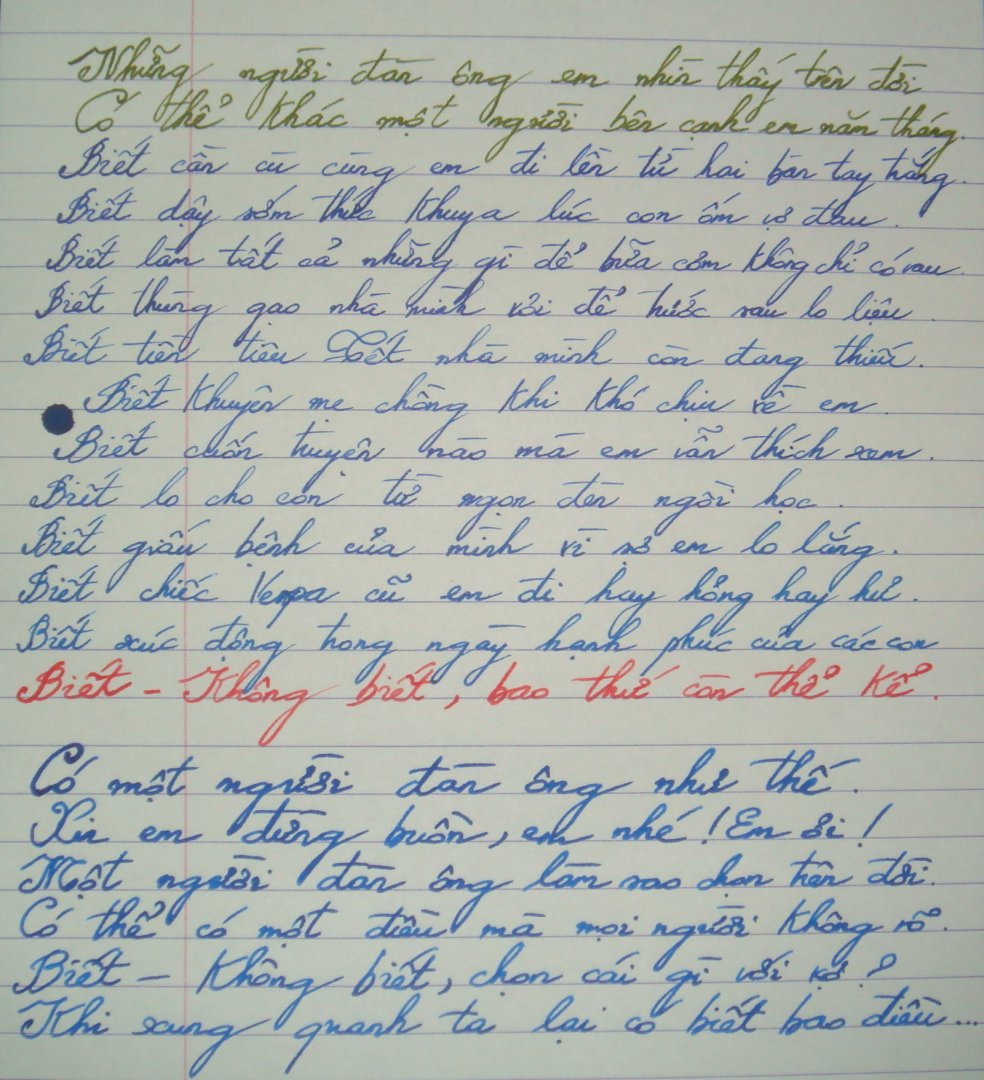 Những người đàn ông em nhìn thấy trên đời
Có thể khác một người bên cạnh em năm tháng.
Biết cần cù cùng em đi lên từ hai bàn tay trắng.
Biết dậy sớm thức khuya lúc con ốm vợ đau.
Biết làm tất cả những gì để bữa cơm không chỉ có rau.
Biết thùng gạo nhà mình vơi để trước sau lo liệu.
Biết tiền tiêu Tết nhà mình còn đang thiếu.
Biết khuyên mẹ chồng khi khó chịu về em.
Biết cuốn truyện nào mà em vẫn thích xem.
Biết lo cho con từ ngọn đèn ngồi học.
Biết giấu bệnh của mình vì sợ em lo lắng.
Biết chiếc Vespa cũ em đi hay hỏng hay hư.
Biết xúc động trong ngày hạnh phúc của các con
Biết - Không biết, bao thứ còn thể kể.
Có một người đàn ông như thế.
Xin em đừng buồn, em nhé! Em ơi!
Một người đàn ông làm sao chọn trên đời.
Có thể có một điều mà mọi người không rõ.
Biết - Không biết, chọn cái gì với vợ?
Khi xung quanh ta lại có biết bao điều...